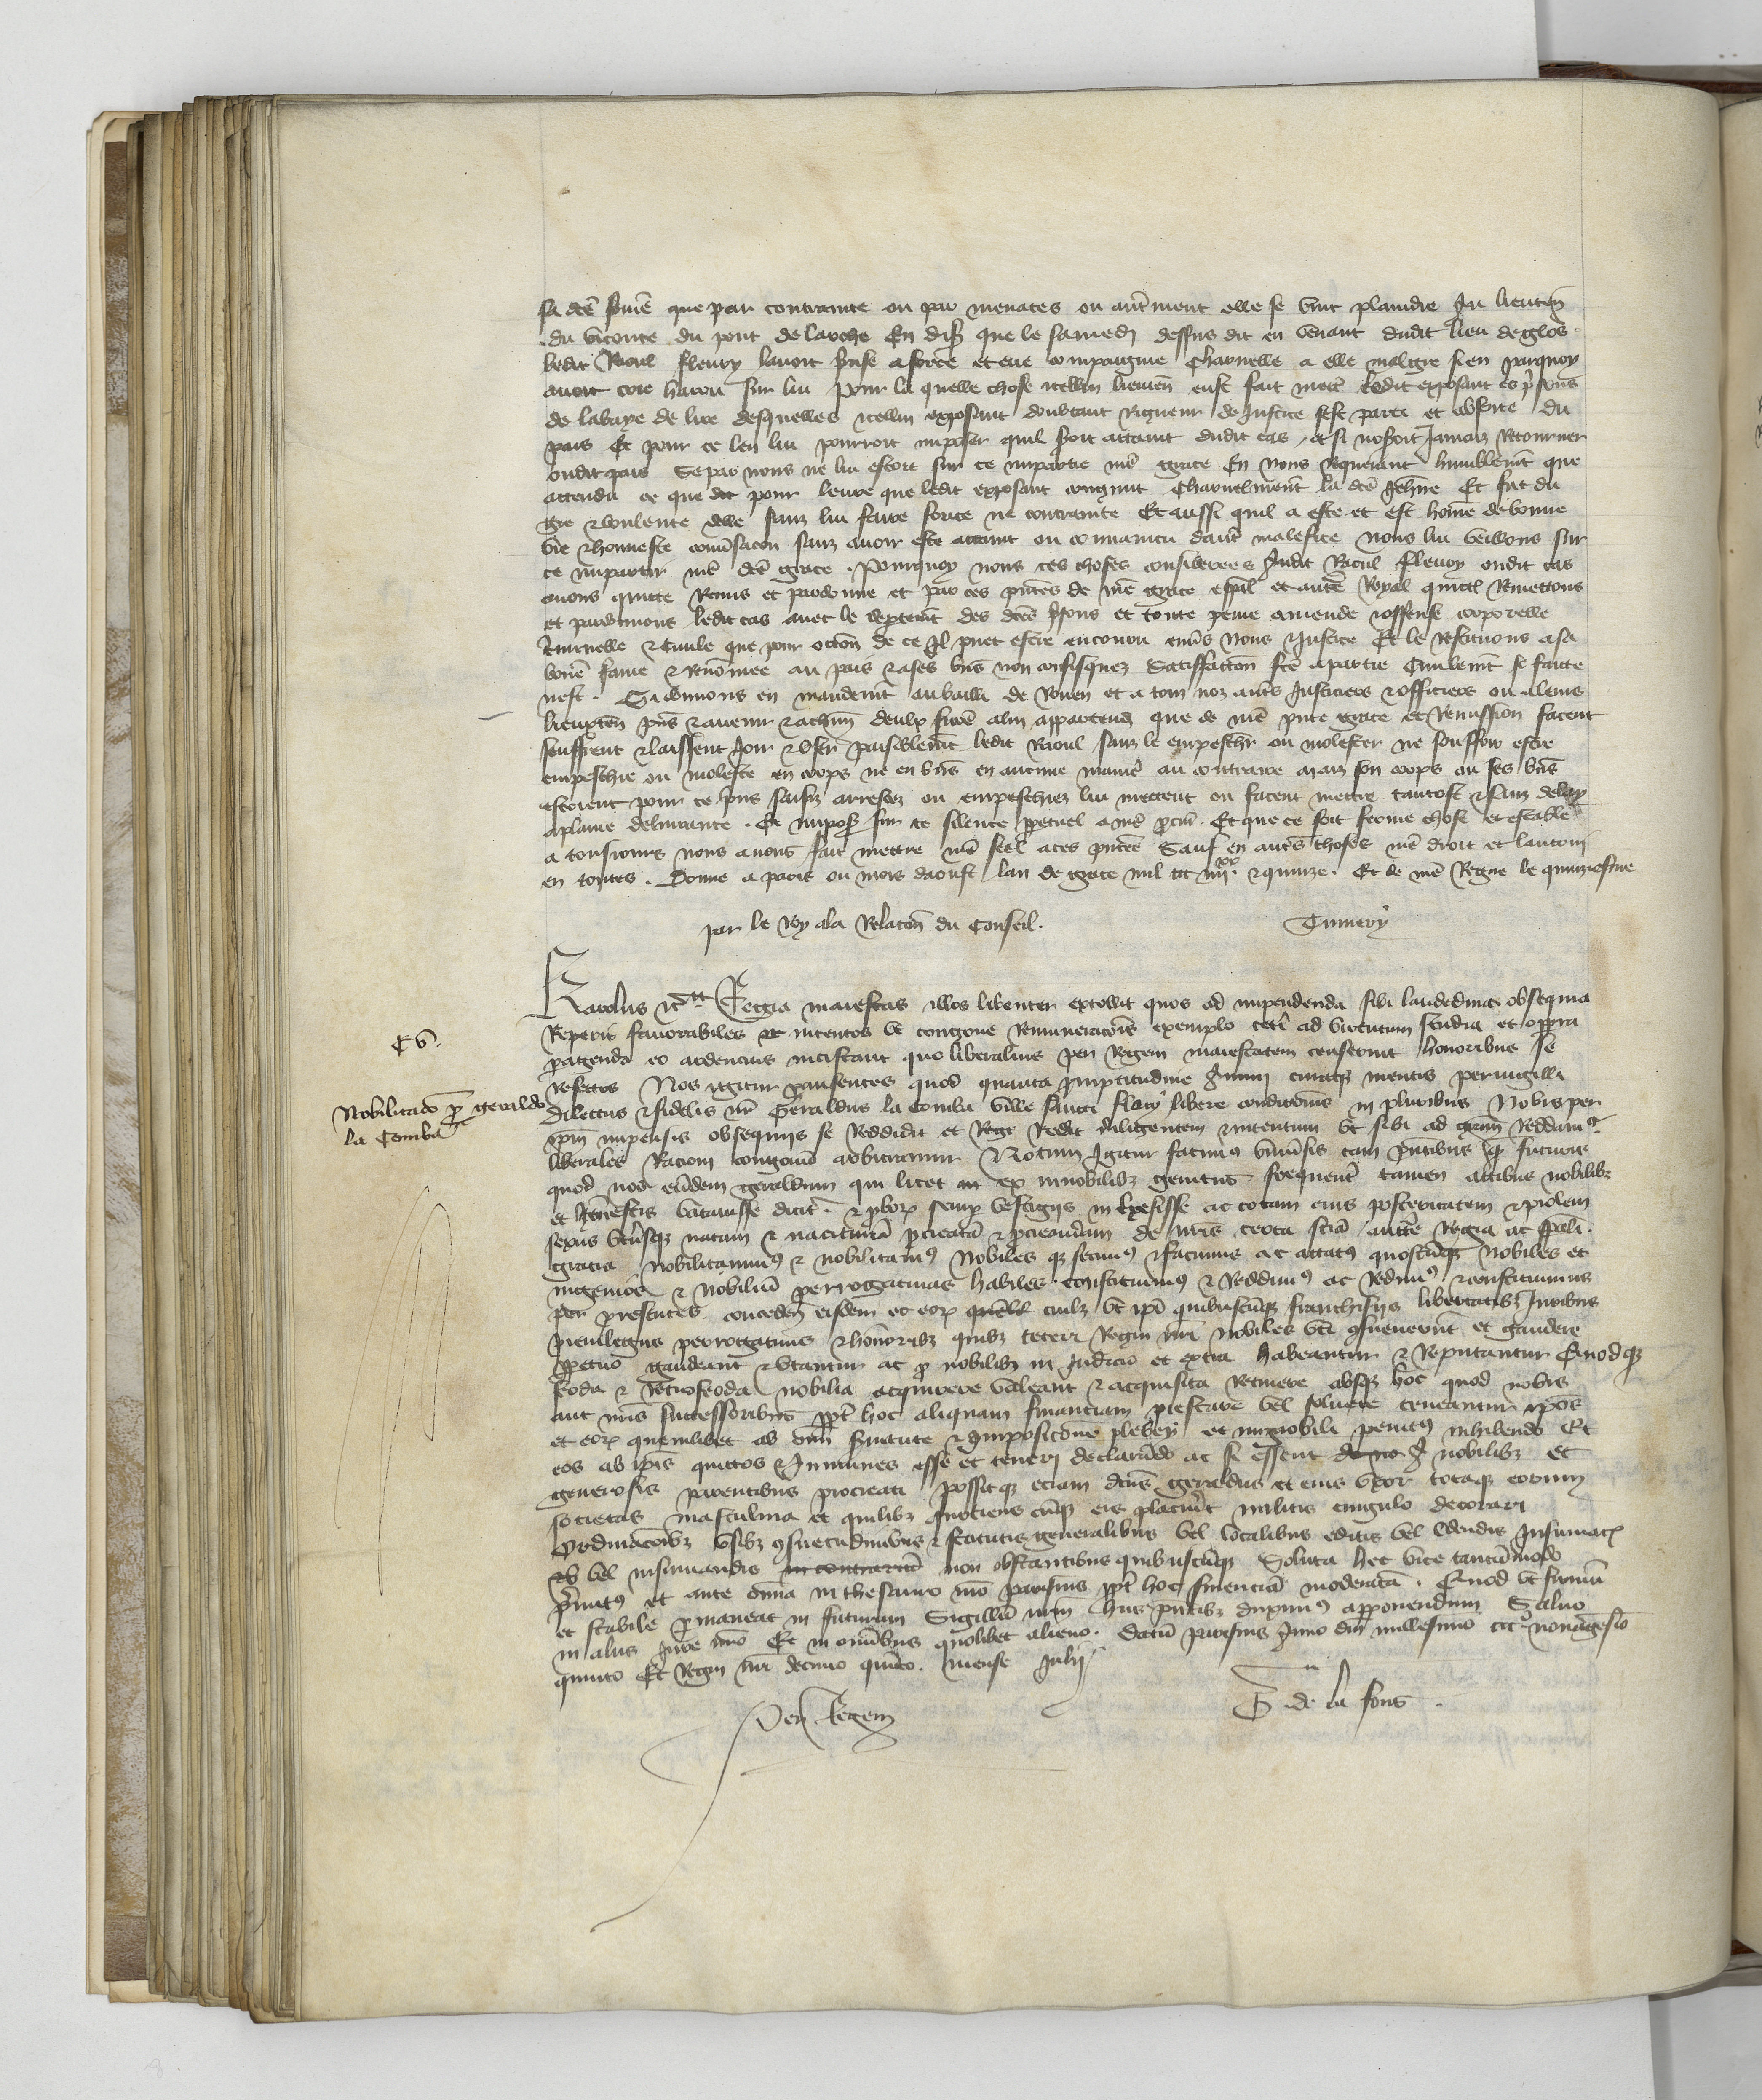 sa dcē femē que par contrainte ou par menaces ou autrement elle se vint plaindre au lieuten̄
du viconte du pont de larche En dis̄ que le samedj dessus dit en venant dudit lieu de glos
ledit Raoul fleury lavoit prise a force et eue compaignie charnelle a elle maltgre sien parquoy
avoit crie harou sur lui pour la quelle chose icellui lieuten̄ eust fait mett̄ ledit exposant es prisons
de labaye de lire desquelles icellui exposant doubtant rigueur de justice sest parti et absente du
pais Et pour ce len lui pourroit imposer quil soit attaint dudit cas et si noseroit jamais retourner
oudit pais Se par nous ne lui estoit sur ce impartie nr̄e grace En nous requerant humblemt̄ que
attendu ce que dit pour leure que ledit exposant congnut charnelment la dcē Et fut du
gre & voulente delle sanz lui faire force ne contrainte Et aussi quil a este et est hōme de bonne
vie & honneste conv̄sacion sanz avoir este attaint ou convaincu daut̄ malefice nous lui veillons sur
ce impartir nr̄e dcē grace . Pourquoy nous ces choses considerees Audit Raoul fleury oudit cas
avons quitte remis et pardonne et par ces pn̄tes de nr̄e grace esp̄al et autē Royal quictōs Remettons
et pardonnons ledit cas avec le des dcēs prisons et toute peine amende & offense corporelle
criminelle & civile que pour occōn de ce il puet estre encouru env̄s nous & justice Et le restituons a sa
bonē fame & renōmee au pais & a ses biēs non confisquez Satisfaction fcē a partie civilemt̄ se faitte
nest . Si donnons en mandemt̄ au bailli de Rouen et a touz noz aut̄s justiciers & officiers ou a leurs
lieuxten̄ pn̄s & avenir & a chūn deulx sicōe a lui appartend̄ que de nr̄e pn̄te grace et remission facent
seuffrent & laissent joir & user paisiblemt̄ ledit Raoul sanz le empeschr̄ ou molester ne souffrir estre
empeschie ou moleste en corps ne en biēs en aucune maniē au contraire mais son corps ou ses biēs
estoient pour ce pris saisiz arrestez ou empeschiez lui mettent ou facent mettre tantost & sanz delay
a plaine delivrance . Et imposōs sur ce silence perpetuel a nr̄e procur̄ . Et que ce soit ferme chose et estable
a tousiours nous avons fait mettre nr̄e scel a ces pn̄tes Sauf en aut̄s choses nr̄e droit et lautrui
en toutes . Donne a paris ou mois daoust lan de grace mil ccc iiijxx & quinze . Et de nr̄e Regne le quinziesme
par le Roy a la Relacōn du Conseil . 
Karolus &c. Regia maiestas illos libenter extollit quos ad impendenda sibi laudedigna obsequia
Reperit favorabiles et intentos ut congrue remuneracōis exemplo cet̄i ad virtutum studia et opera
peragenda eo ardencius insistant quo liberalius per Regiam maiestatem censerint honoribus se
refectos Nos igitur pansentes quod quanta promptitudine animi curaq; mentis pervigilli
CV.
Nobilitacio p̄ geraldo
la Comba
dilectus & fidelis nr̄ Geraldus la Comba ville sancti flori libere condicionis in pluribus Nobis per
ipm̄ impensis obsequijs se reddidit et reddit diligentem & intentum ut sibi ad grām reddamꝰ
liberales racioni congruū arbitramur Notum igitur facimꝰ univ̄sis tam pn̄tibus q̄ futuris
quod nos eūdem geraldum qui licet ex innobilibꝫ genitus frequent̄ tamen actibus nobilibꝫ
et honestis vacavisse dicit̄ & proboꝝ semp̄ vestigijs inhesisse ac totam eius posteritatem & prolem
sexus utriusqꝫ natam & nascituram p̄creatā & p̄creandam de nr̄is certa sciā auttē Regia ac sp̄ali
gratia nobilitavimꝰ & nobilitamꝰ Nobiles qꝫ fecimꝰ & facimus ac ad actus quoscūqꝫ nobiles et
ingenuos & nobiliū prerrogativas habiles constituimꝰ & reddimꝰ ac redimꝰ & constituimus
per presentes . conceden̄ eisdem et eoꝝ cuilꝫ ut ipi quibuscūqꝫ franchisijs libertatibꝫ juribus
privilegiis prerrogativis & honoribꝫ quibꝫ ceteri Regni nr̄i nobiles uti consueverūt et gaudere
perpetuo gaudeant & utantur ac pro nobilibꝫ in Judicio et extra habeantur & reputantur Quodqꝫ
feoda & Retrofeoda nobilia acquirere valeant & acquisita retinere absqꝫ hoc quod nobis
aut nr̄is successoribus p̄pt̄ hoc aliquam financiam prestare vel solvere teneantur ip̄os
et eoꝝ quemlibet ab om̄i s̄vitute & imposicōne plebeȳ et innobili penitꝰ inhibendo Et
eos ab ip̄is quittos & Immunes esse et teneri declarādo ac si essent de nobilibꝫ et
generosis parentibus procreati possitqꝫ eciam dcūs geraldus et eius uxor totaqꝫ eorum
societas masculina et quilibꝫ quociens cūqꝫ eis placuīt militie cingulo decorari
Ordinacōibꝫ usibꝫ consuetudinibus & statutis generalibus vel localibus editis vel edendis Insinuatꝫ
vel insinuandis in contrariū non obstantibus quibuscūqꝫ Soluta hec vice tantūmodo
p̄mitꝰ et ante om̄ia in thesauro nr̄o parisius p̄pt̄ hoc financiā moderatā . Quod ut firmū
et stabile p̄maneat in futurum Sigillū nr̄m hiis pn̄tibꝫ duximꝰ apponendum Salvo
in aliis jure nr̄o Et in omībus quolibet alieno . Datū parisius Anno dn̄i millesimo cccº nonagesīo
quinto Et Regni nr̄i decimo quīto . mense Julij
Per Regem G de la fons .